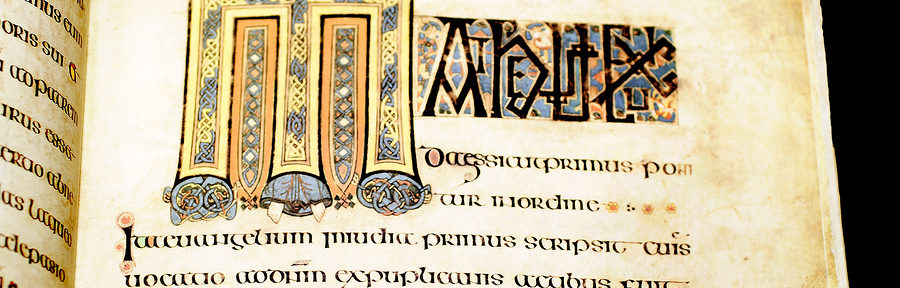 cum
oris sui
ad patrem
esse
MATHEUS EX
daes sicut primus pon
tur in ordine
Ita euangelium in iudea primus scripsit cuis
uocatio ad dnm ex puplicanis actibus fuit